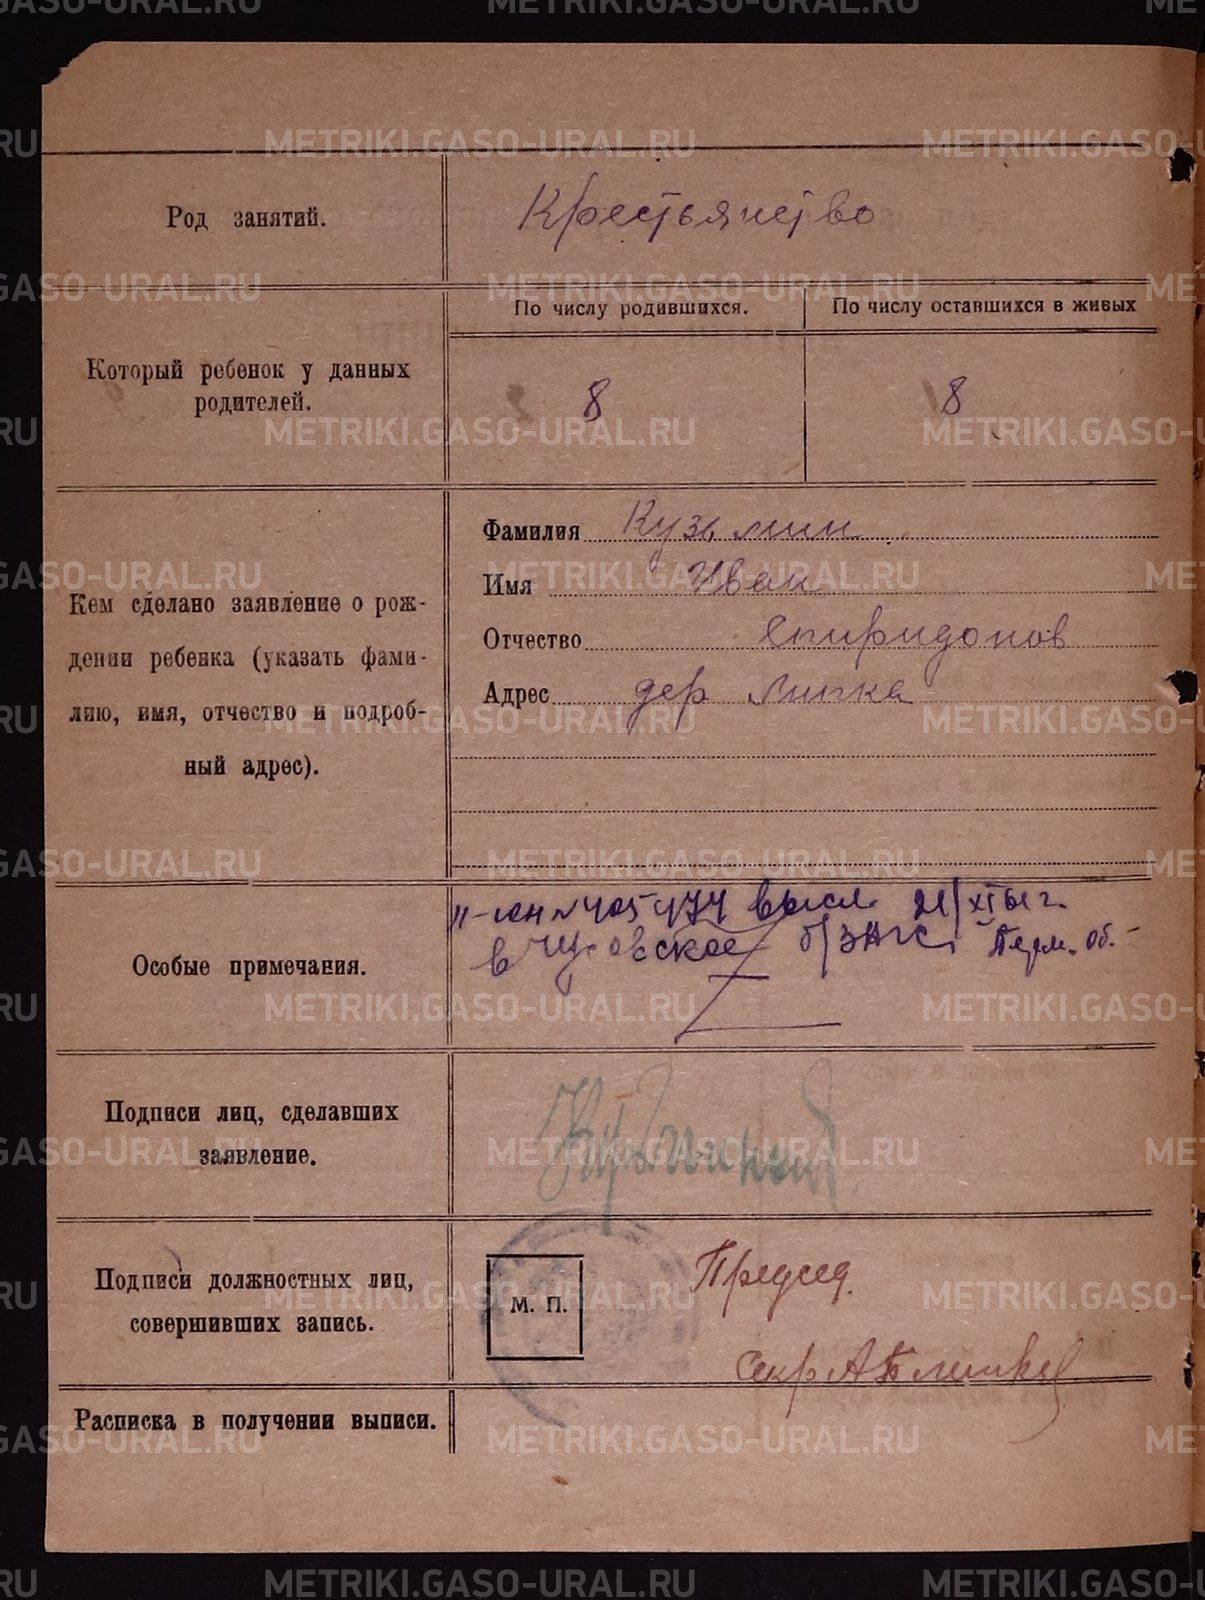 METRIKI.GASO-URAL.RU
Род занятий.
Крестьянство
Который ребенок у данных
родителей.
По числу родившихся.
По числу оставшихся в живых
8
8
Кем сделано заявление о рож-
дении ребенка (указать фами-
лию, имя, отчество и подроб-
ный адрес).
Фамилия Кузьмин
Имя Иван
Отчество Спиридонов
Адрес дер Липка
Особые примечания.
II-ЮН № 405474 высл. 21/XI 61 г.
в Чусовское б/ЗАГС, Перм. об.
Подписи лиц, сделавших
заявление.
Подписи должностных лиц,
совершивших запись.
М. П.
Председ.
Секр
Расписка в получении выписи.